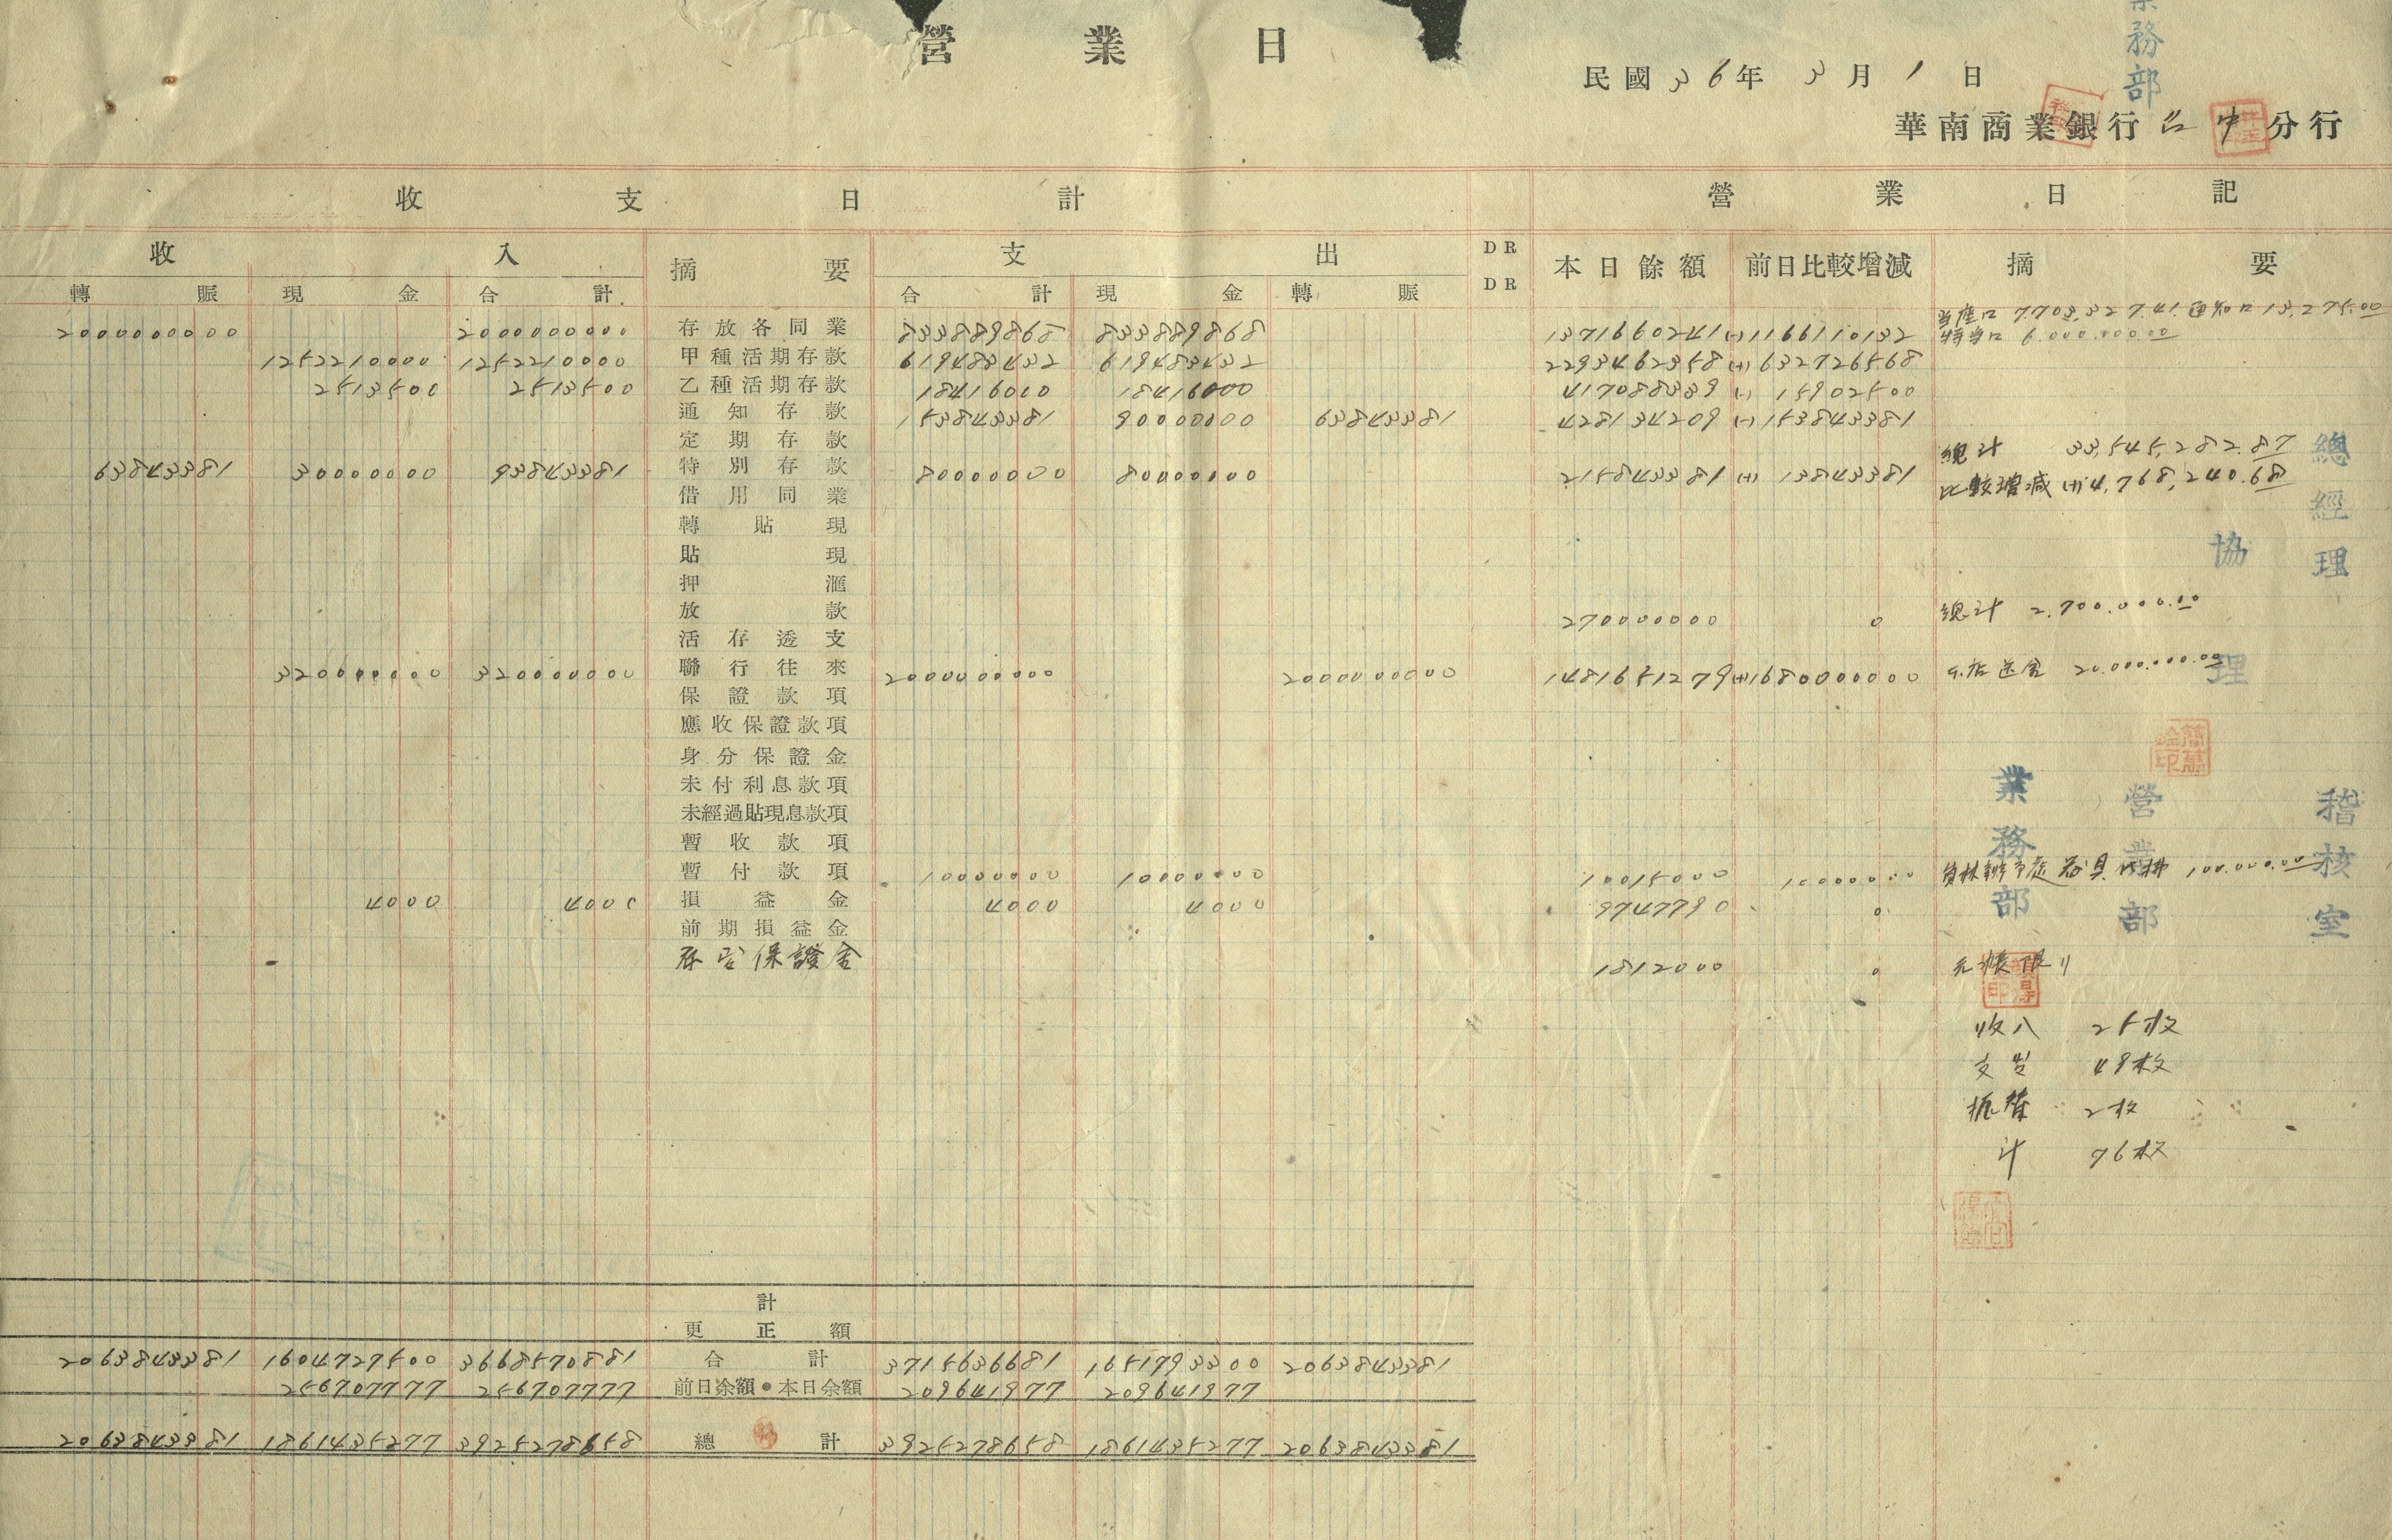 營 業 日
民國36年 3月1日
業務部
華南商業銀行台中分行
收支日計
營業日記
收入 摘要 支出 DR DR 本日餘額 前日比較增減 摘要
轉賬 現金 合計 合計 現金 轉賬
2000000000 2000000000 存放各同業 833889868 833889868 1371660241 (-)1166110132 当座口 7.703.327.41 通知口 13.275.00
特当口 6.000.000.00
1252210000 1252210000 甲種活期存款 619483432 619483432 2293462358 (+)632726568
2513500 2513500 乙種活期存款 18416000 18416000 417088339 (-) 15902500
通知存款 153843381 90000000 63843381 428134209 (-)153843381
定期存款
總計 33,545,282.87
63843381 30000000 93843381 特別存款 80000000 80000000 215843381 (+) 13843381
比較增減 (+)4,768,240.68
借用同業
轉貼現
貼現
押滙
放款 270000000 0 總計 2.700.000.00
活存透支
320000000 320000000 聯行往來 2000000000 2000000000 1481651279 (+)1680000000 20.000.000.00
保證款項
應收保證款項
身分保證金
未付利息款項
未經過貼現息款項
暫收款項
暫付款項 10000000 10000000 10015000 10000000 員林辦事處器具 100.000.00
4000 4000 損益金 4000 4000 9747790 0
前期損益金
存出保證金 1812000 0
總經理
協理
稽核室
營業部
業務部
收入 25枚
支出 49枚
振替 2枚
計 76枚
計
更正額
2063843381 1604727500 3668570881 合計 3715636681 1651793300 2063843381
256707777 256707777 前日余額•本日余額 209641977 209641977
2063843381 1861435277 3925278658 總計 3925278658 1861435277 2063843381